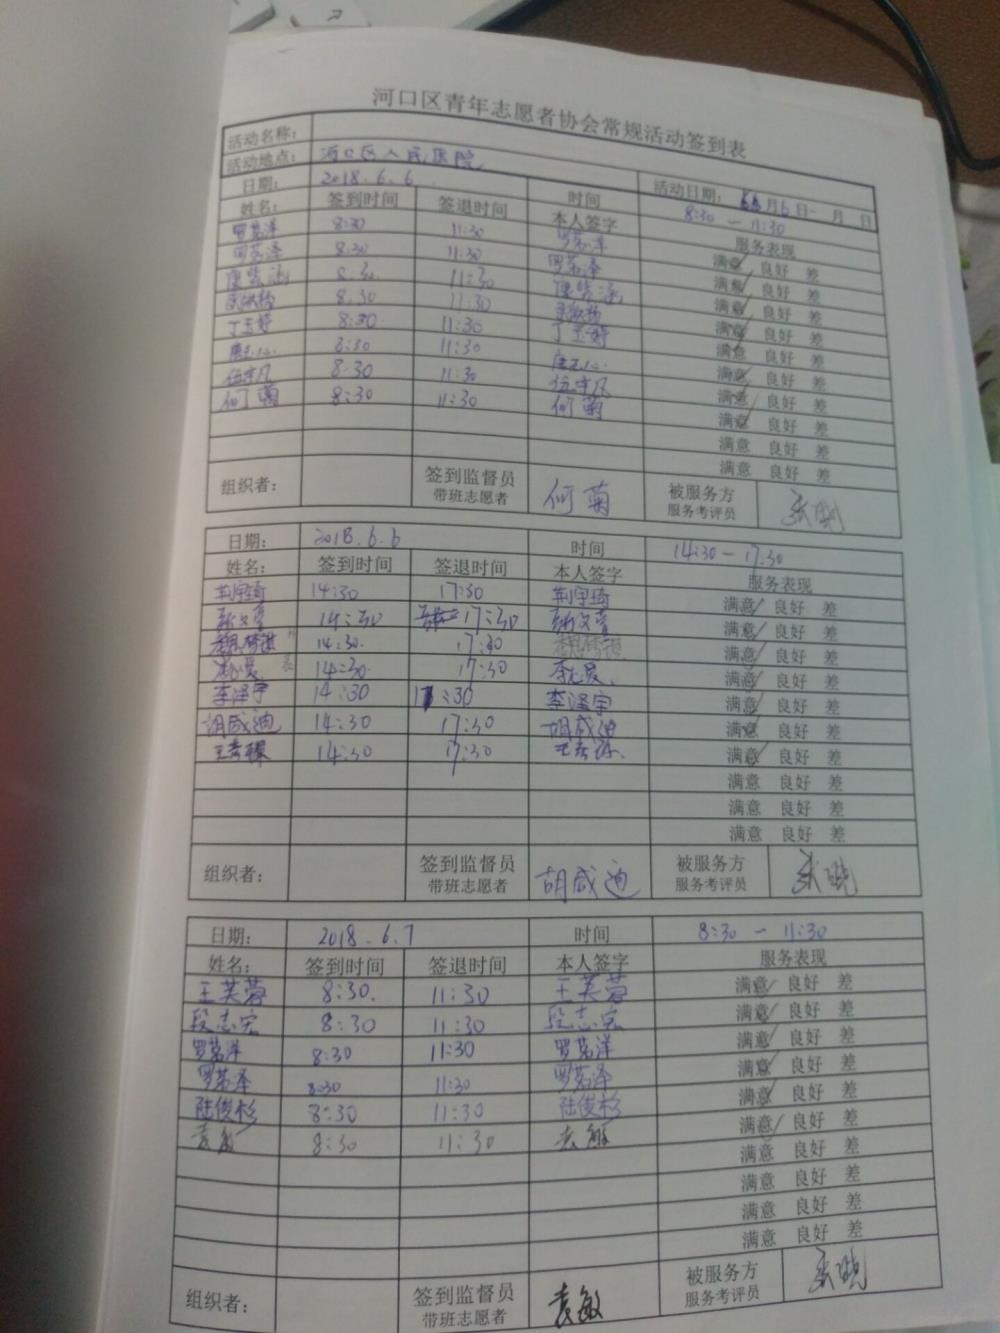 河口区青年志愿者协会常规活动签到表
活动名称：
活动地点： 河口区人民医院 活动日期： 月6日一 月 日
日期： 2018.6.6 时间 8:30 — 11:30
姓名： 签到时间 签退时间 本人签字 服务表现
罗茗洋 8:30 11:30 罗茗洋 满意 良好 差
罗茗泽 8:30 11:30 罗茗泽 满意 良好 差
8:30 11:30 满意 良好 差
8:30 11:30 满意 良好 差
丁玉婷 8:30 11:30 丁玉婷 满意 良好 差
8:30 11:30 满意 良好 差
伍宇凡 8:30 11:30 伍宇凡 满意 良好 差
何菊 8:30 11:30 何菊 满意 良好 差
满意 良好 差
满意 良好 差
组织者： 签到监督员 带班志愿者 何菊 被服务方 服务考评员
日期： 2018.6.6 时间 14:30 — 17:30
姓名： 签到时间 签退时间 本人签字 服务表现
荆宇琦 14:30 17:30 荆宇琦 满意 良好 差
14:30 17:30 满意 良好 差
14:30 17:30 满意 良好 差
14:30 17:30 满意 良好 差
李泽宇 14:30 17:30 李泽宇 满意 良好 差
胡咸迪 14:30 17:30 胡咸迪 满意 良好 差
14:30 17:30 满意 良好 差
满意 良好 差
满意 良好 差
满意 良好 差
组织者： 签到监督员 带班志愿者 胡咸迪 被服务方 服务考评员
日期： 2018.6.7 时间 8:30 — 11:30
姓名： 签到时间 签退时间 本人签字 服务表现
王芙蓉 8:30 11:30 王芙蓉 满意 良好 差
段志宏 8:30 11:30 段志宏 满意 良好 差
罗茗洋 8:30 11:30 罗茗洋 满意 良好 差
罗茗泽 8:30 11:30 罗茗泽 满意 良好 差
陆俊杉 8:30 11:30 陆俊杉 满意 良好 差
袁敏 8:30 11:30 袁敏 满意 良好 差
满意 良好 差
满意 良好 差
满意 良好 差
满意 良好 差
组织者： 签到监督员 带班志愿者 袁敏 被服务方 服务考评员